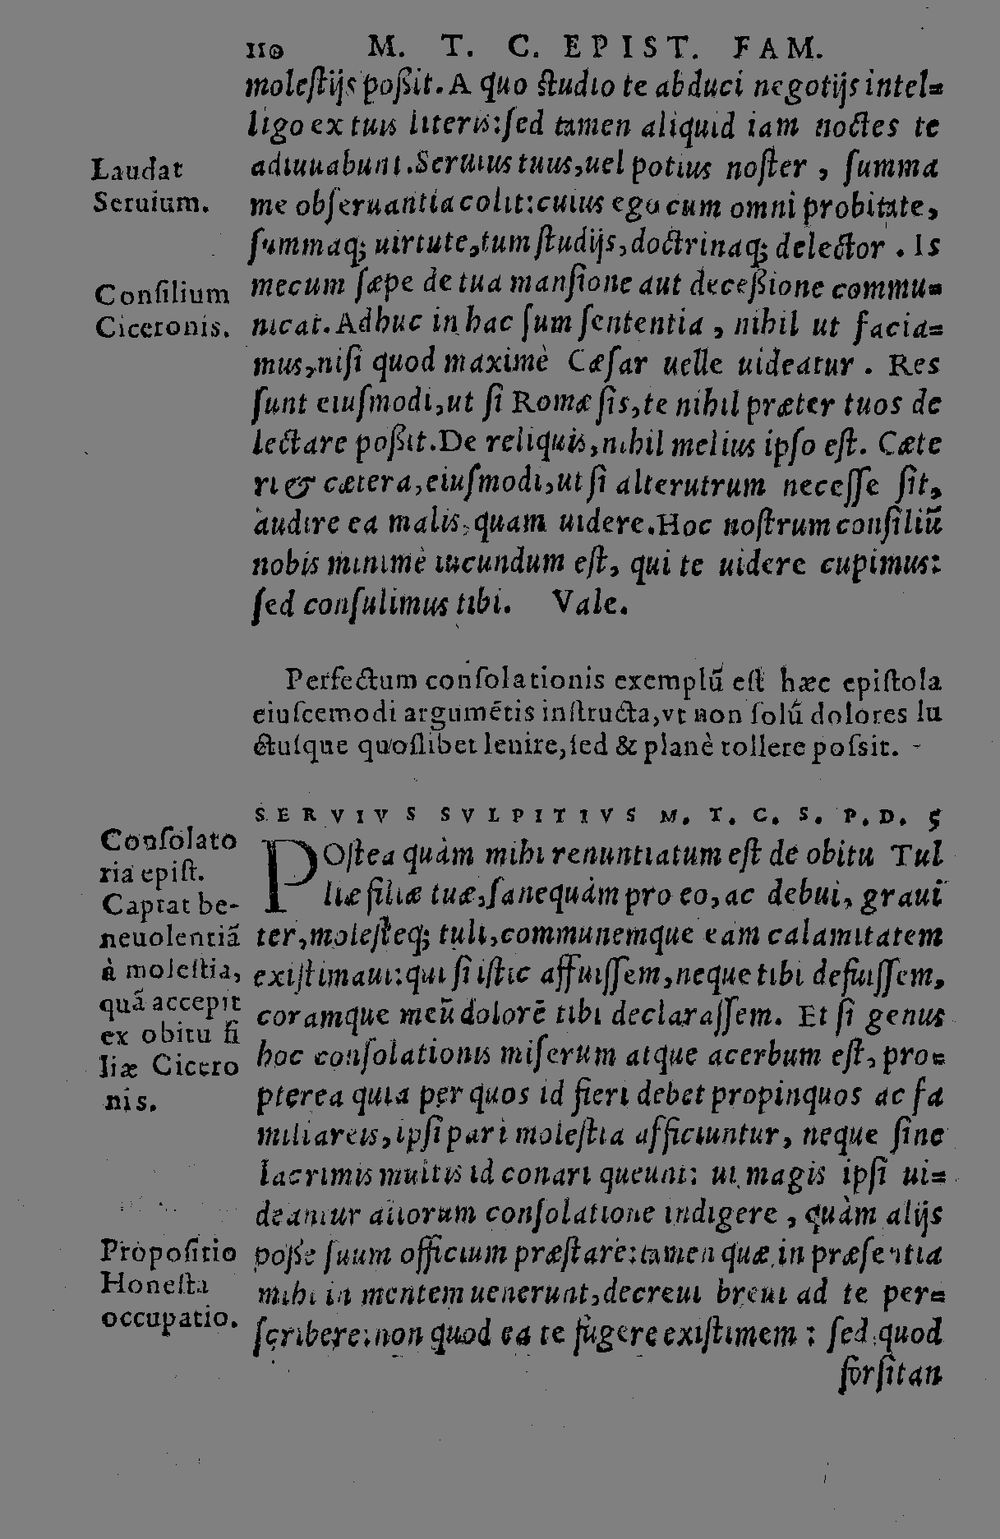 110 M. T. C. EPIST. FAM.
moleſtijs poßit. A quo ſtudio te abduci negotijs intel=
ligo ex tuis literis: ſed tamen aliquid iam noctes te
adiuuabunt. Seruius tuus, uel potius noſter, ſumma
me obſeruantia colit: cuius ego cum omni probitate,
ſummaq; uirtute, tum ſtudijs, doctrinaq; delector. Is
mecum ſæpe de tua manſione aut deceßione commu=
nicat. Adhuc in hac ſum ſententia, nihil ut facia=
mus, niſi quod maximè Cæſar uelle uideatur. Res
ſunt eiuſmodi, ut ſi Romæ ſis, te nihil præter tuos de
lectare poßit. De reliquis, nihil melius ipſo eſt. Cæte
ri & cætera, eiuſmodi, ut ſi alterutrum neceſſe ſit,
audire ea malis, quam uidere. Hoc noſtrum conſiliũ
nobis minimè iucundum eſt, qui te uidere cupimus:
ſed conſulimus tibi. Vale.
Laudat
Seruium.
Conſilium
Ciceronis.
Perfectum conſolationis exemplũ eſt hæc epiſtola
eiuſcemodi argumẽtis inſtructa, vt non ſolũ dolores lu
ctuſque quoſlibet lenire, ſed & planè tollere poſsit.
SERVIVS SVLPITIVS M. T. C. S. P. D. 5
POſtea quàm mihi renuntiatum eſt de obitu Tul
liæ filiæ tuæ, ſanequàm pro eo, ac debui, graui
ter, moleſteq; tuli, communemque eam calamitatem
exiſtimaui: qui ſi iſtic affuiſſem, neque tibi defuiſſem,
coramque meũ dolorẽ tibi declaraſſem. Et ſi genus
hoc conſolationis miſerum atque acerbum eſt, pro=
pterea quia per quos id fieri debet propinquos ac fa
miliareis, ipſi pari moleſtia afficiuntur, neque ſine
lacrimis multis id conari queunt: ut magis ipſi ui=
deantur aliorum conſolatione indigere, quàm alijs
poße ſuum officium præſtare: tamen quæ in præſentia
mihi in mentem uenerunt, decreui breui ad te per=
ſcribere: non quod ea te fugere exiſtimem: ſed quod
forſitan
Conſolato
ria epiſt.
Captat be-
neuolentiã
à moleſtia,
quã accepit
ex obitu fi
liæ Cicero
nis.
Propoſitio
Honeſta
occupatio.